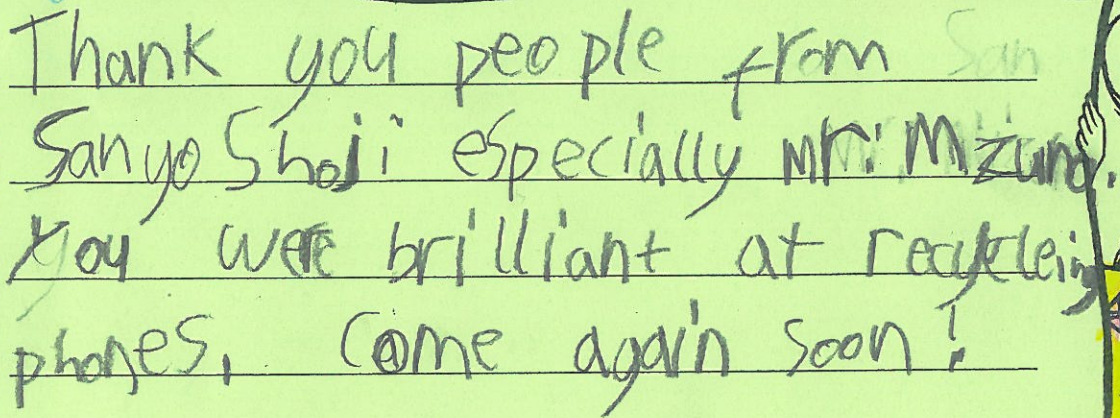 Thank you people from
Sanyo Shoji especially Mr. Mzuno.
You were brilliant at recycleing
phones, Come again soon!